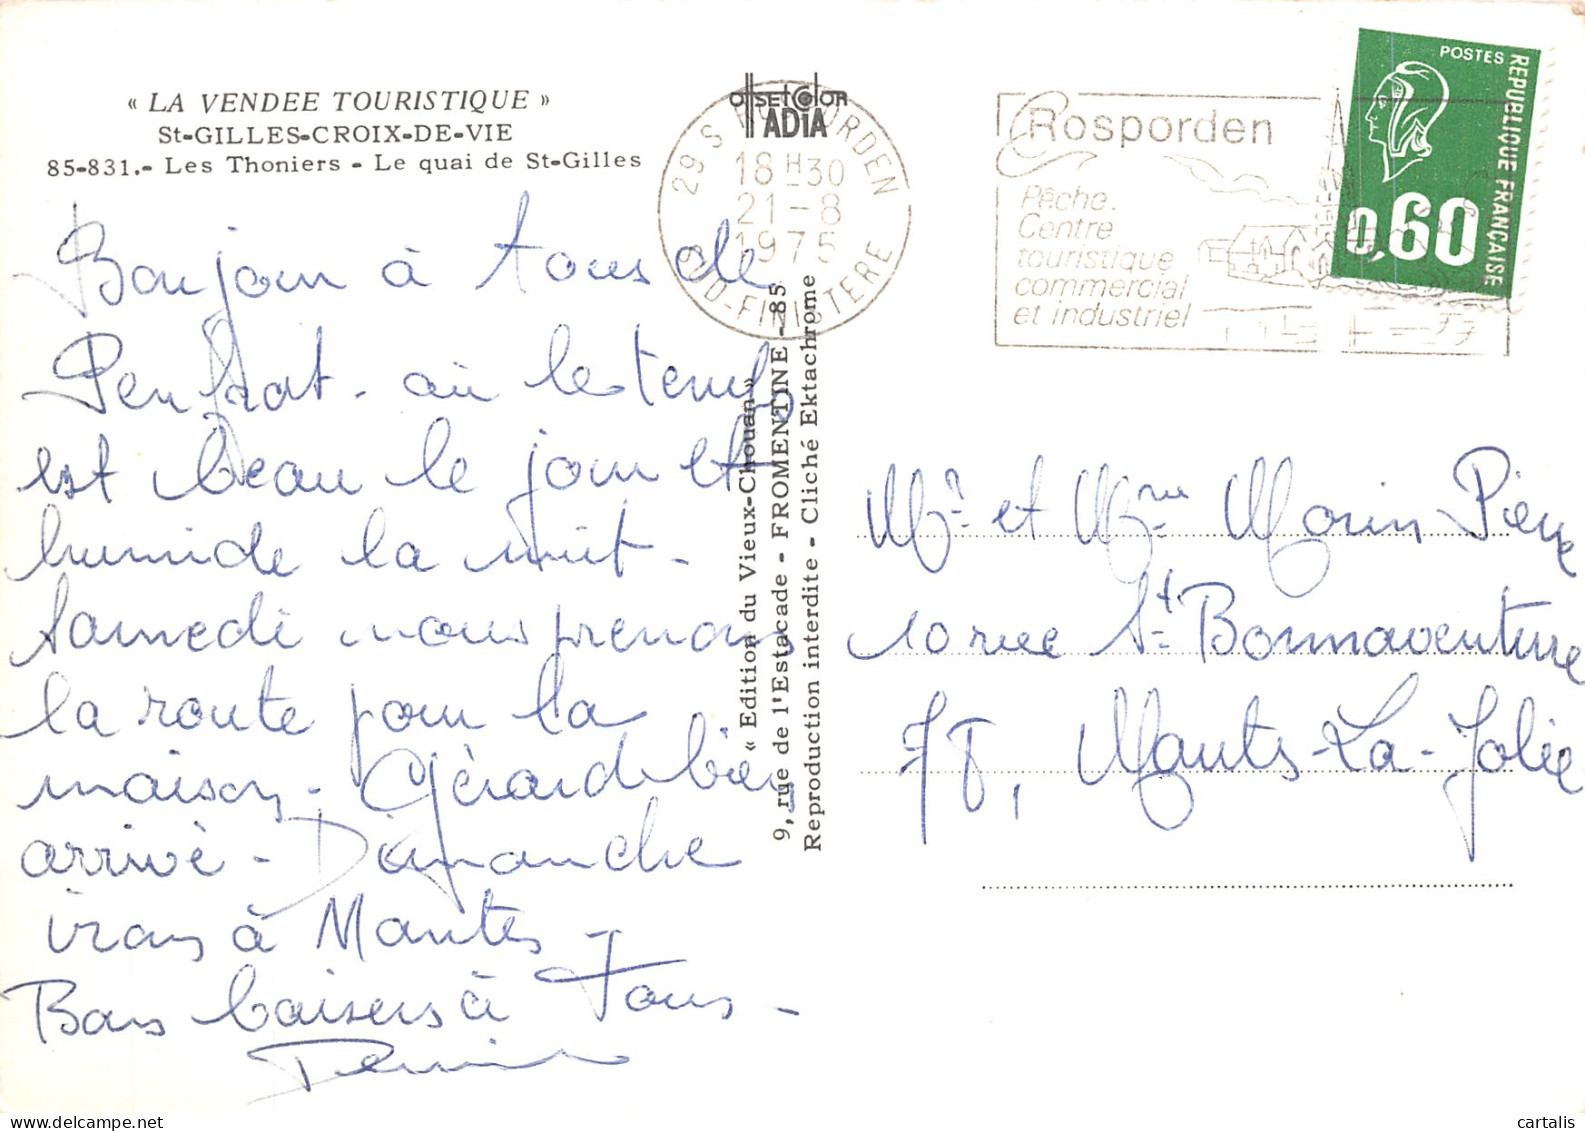 « LA VENDEE TOURISTIQUE »
St-GILLES-CROIX-DE-VIE
85-831.- Les Thoniers - Le quai de St-Gilles
Bonjour à tous de
Penfrat - où le temps
est beau le jour et
humide la nuit -
Samedi nous prenons
la route pour la
maison - Gérard bien
arrivé - Dimanche
irons à Mantes -
Bons baisers à Tous -
OFFSET COLOR
ADIA
29 S ROSPORDEN
18 H 30
21 - 8
1975
SUD-FINISTERE
« Edition du Vieux-Chouan »
9, rue de l'Estacade - FROMENTINE - 85
Reproduction interdite - Cliché Ektachrome
Rosporden
Pêche.
Centre
touristique
commercial
et industriel
POSTES
REPUBLIQUE FRANÇAISE
0,60
Mr et Mme Morin Pierre
10 rue St Bonnaventure
78, Mantes-La-Jolie
cartalis